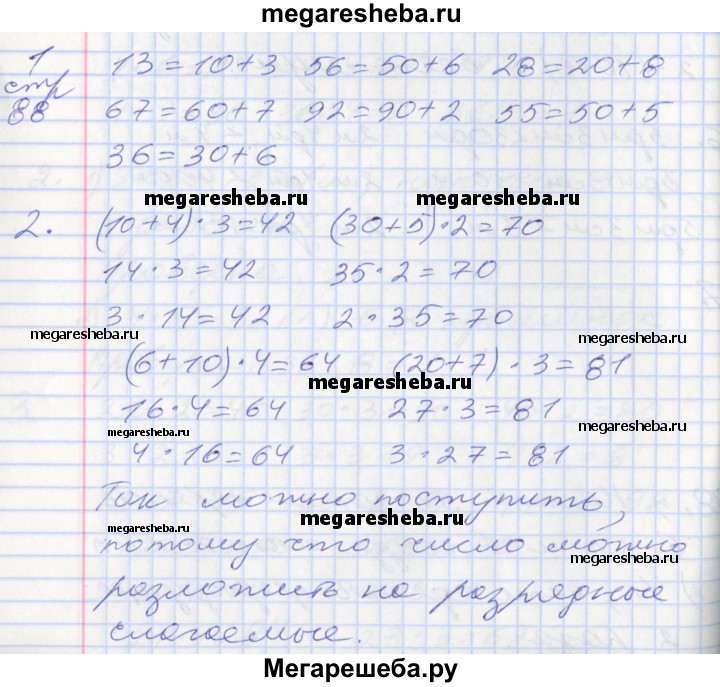 megaresheba.ru
1 13=10+3 56=50+6 28=20+8
стр
88 67=60+7 92=90+2 55=50+5
36=30+6
megaresheba.ru megaresheba.ru
2. (10+4)·3=42 (30+5)·2=70
14·3=42 35·2=70
3·14=42 2·35=70
megaresheba.ru megaresheba.ru
(6+10)·4=64 (20+7)·3=81
megaresheba.ru
16·4=64 27·3=81
megaresheba.ru megaresheba.ru
4·16=64 3·27=81
Так можно поступить,
megaresheba.ru megaresheba.ru
потому что число можно
megaresheba.ru
разложить на разрядные
слагаемые.
Мегарешеба.ру